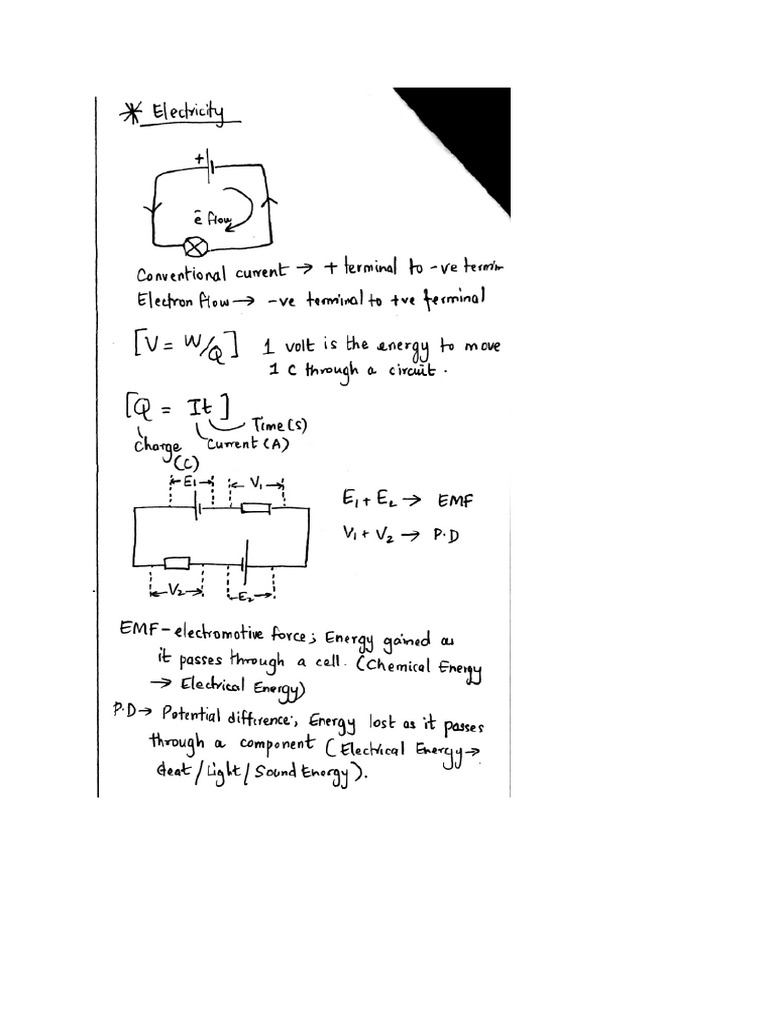 * Electricity
+
ē flow
Conventional current → + terminal to -ve termin
Electron flow → -ve terminal to +ve terminal
[V = W/Q] 1 volt is the energy to move
1 C through a circuit.
[Q = It]
Time (s)
Charge Current (A)
(C)
E1 V1
E1 + E2 → EMF
V1 + V2 → P.D
V2 E2
EMF - electromotive force; Energy gained as
it passes through a cell. (Chemical Energy
→ Electrical Energy)
P.D → Potential difference; Energy lost as it passes
through a component (Electrical Energy →
Heat / Light / Sound Energy).